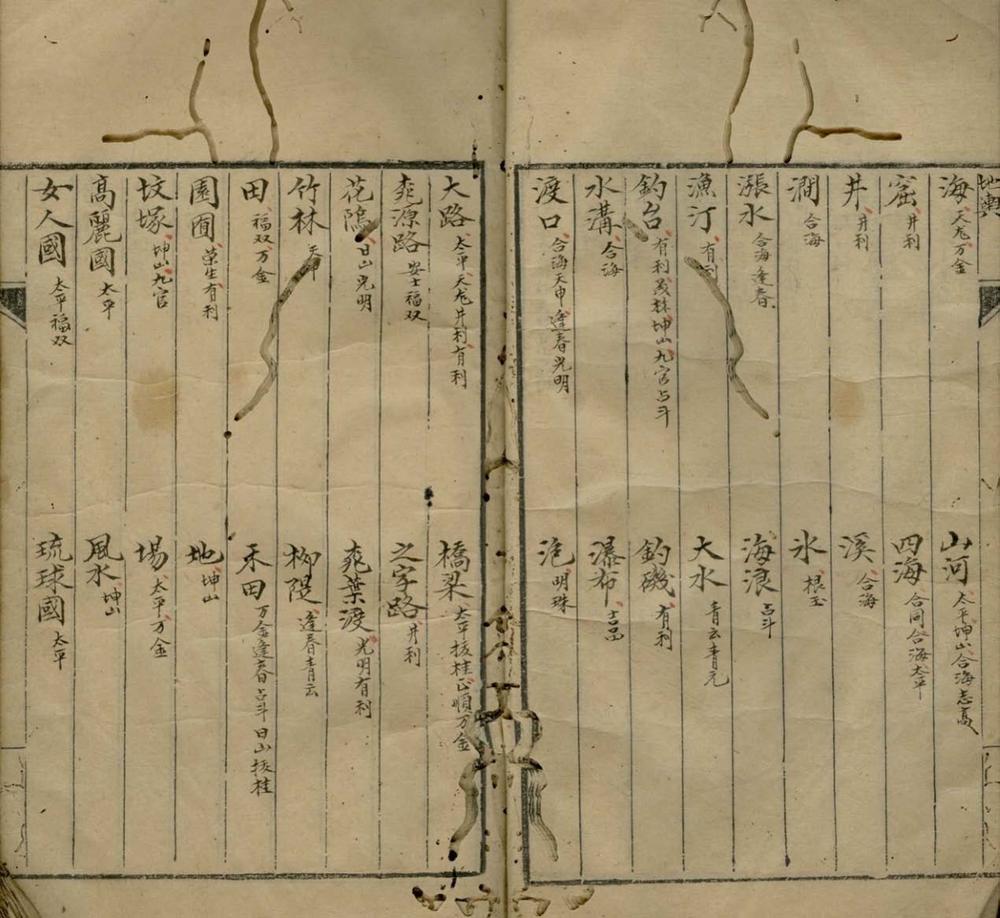 地輿
海 天龙万金
山河 太平坤山合海志高
窑 井利
四海 合同合海太平
井 井利
溪 合海
澗 合海
氷 根玉
漲水 合海逢春
海浪 占斗
漁汀 有利
大水 青云青元
釣台 有利茂林坤山九官占斗
釣磯 有利
水溝 合海
瀑布 吉品
渡口 合海天申逢春光明
泡 明珠
大路 太平天龙井利有利
橋梁 太平扳桂正順万金
桃源路 安士福双
之字路 井利
花鳴 日山光明
桃葉渡 光明有利
竹林 天申
柳隄 逢春青云
田 福双万金
禾田 万金逢春占斗日山扳桂
園囿 荣生有利
地 坤山
坟塚 坤山九官
場 太平万金
高麗國 太平
風水 坤山
女人國 太平福双
琉球國 太平